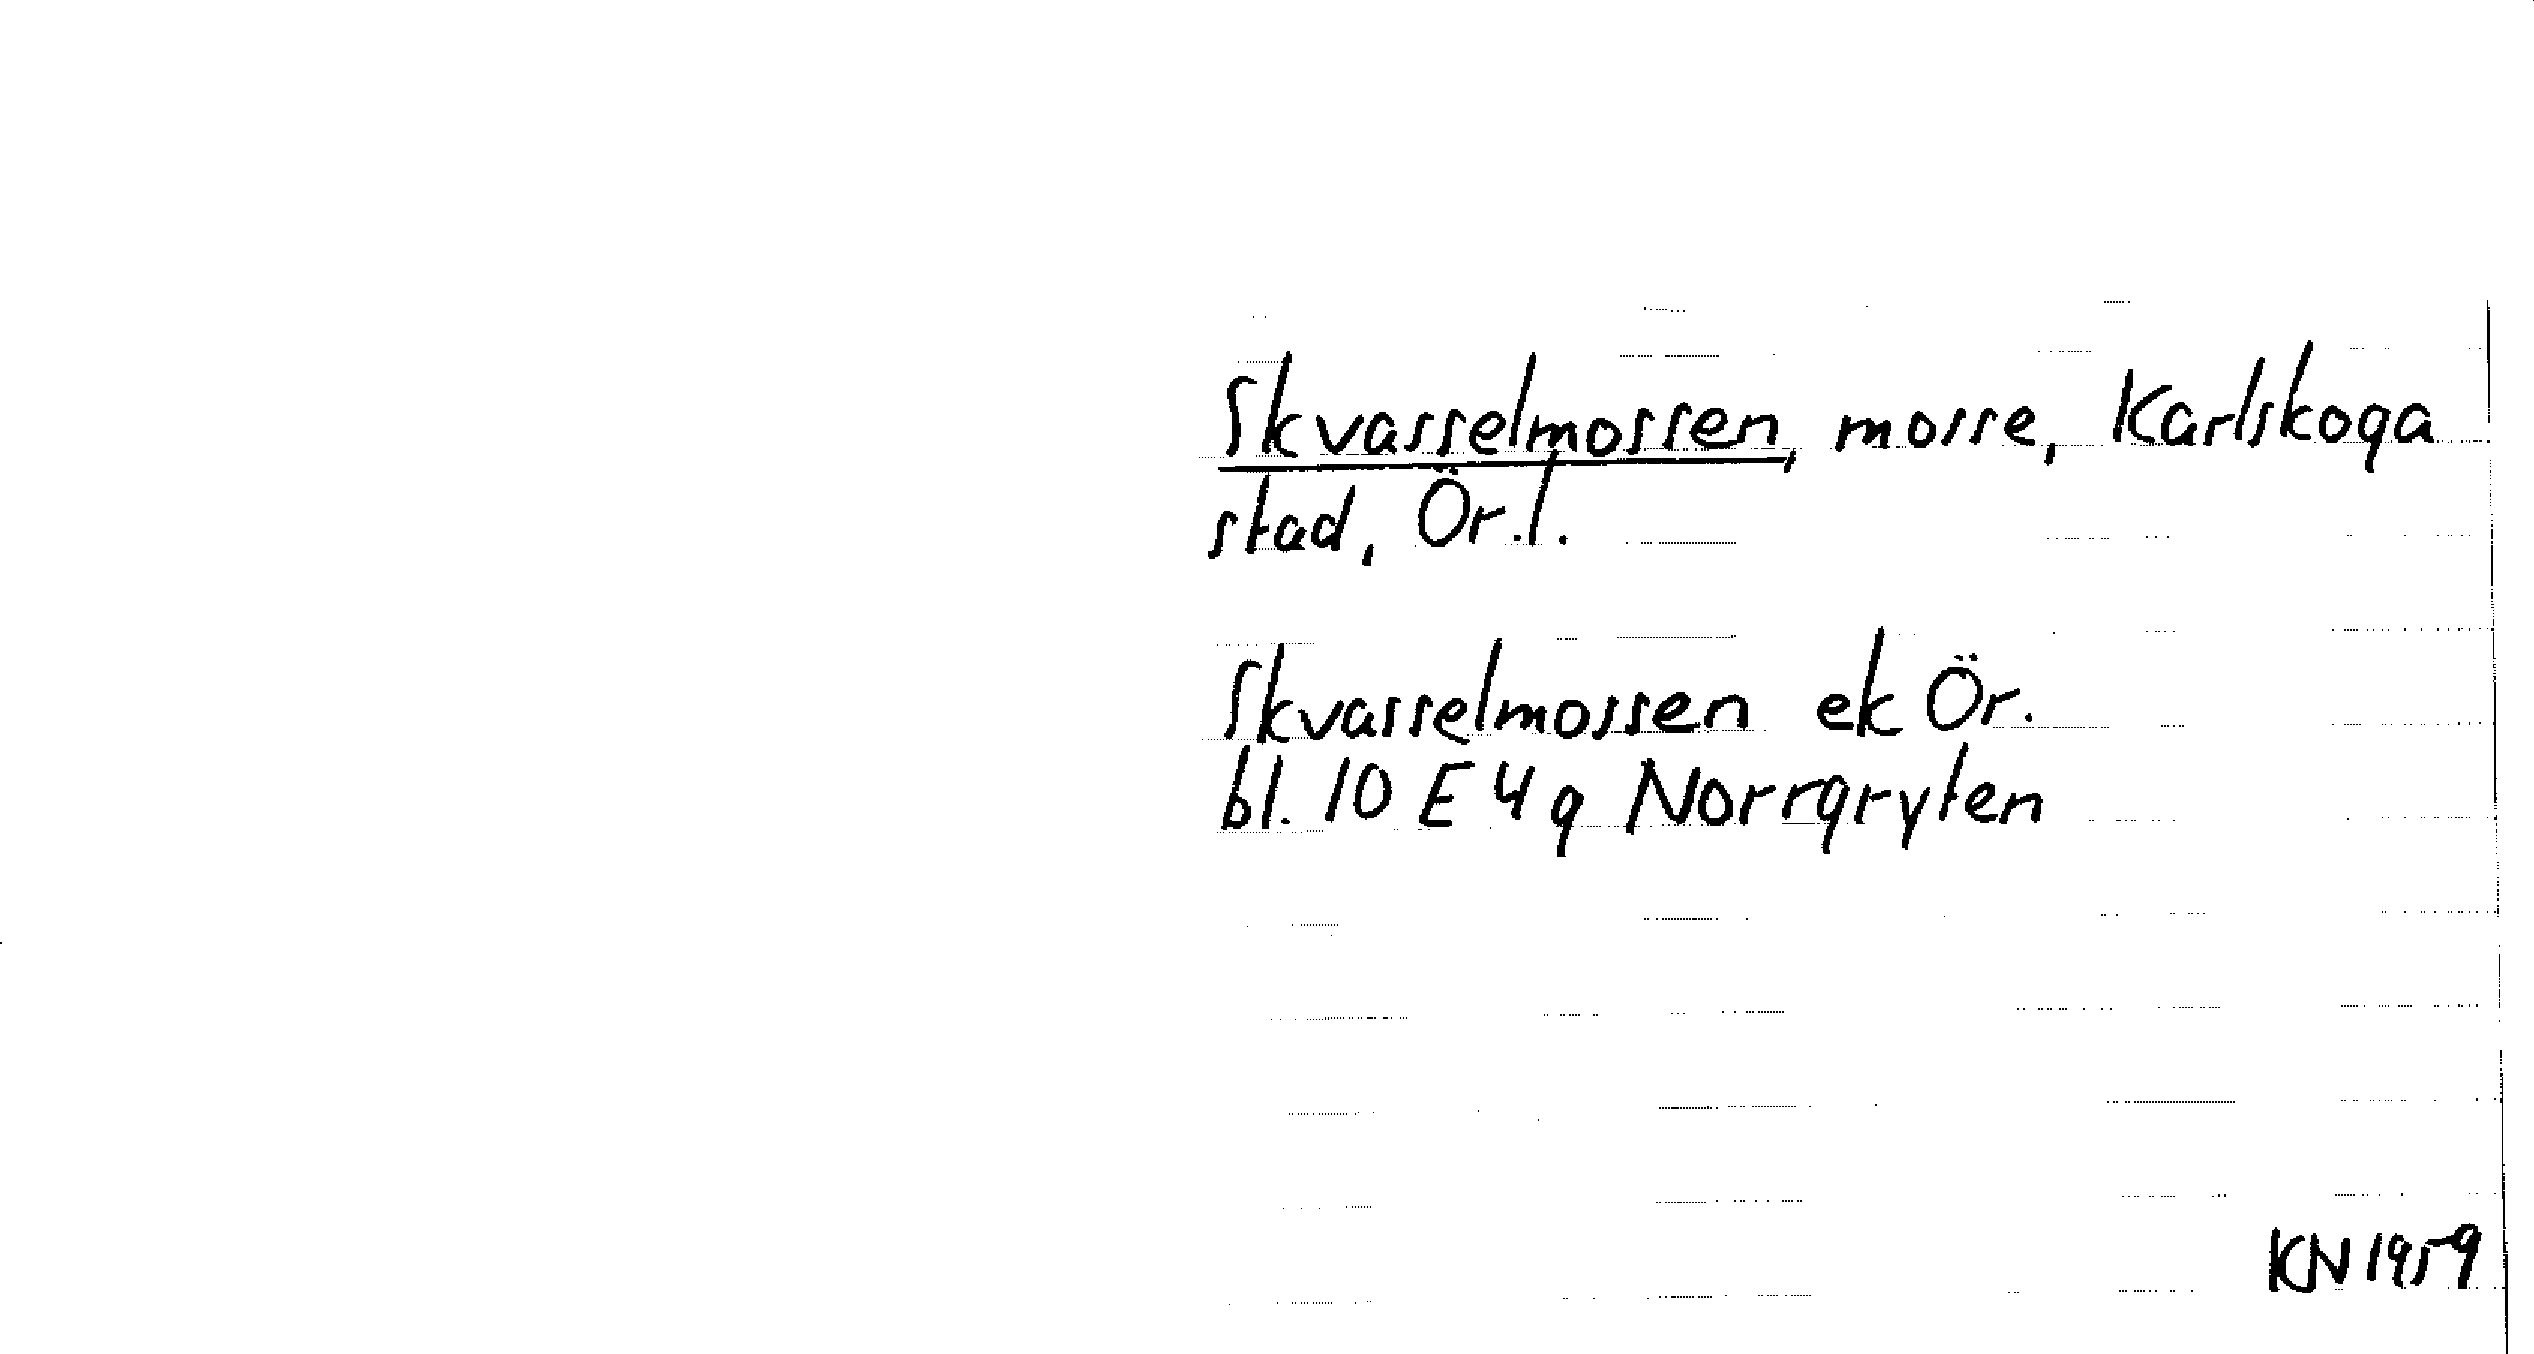 Skvasselmossen, mosse, Karlskoga
stad, Ör.l.
Skvasselmossen ek Ör.
bl. 10 E 4 g Norrgryten
KN 1959